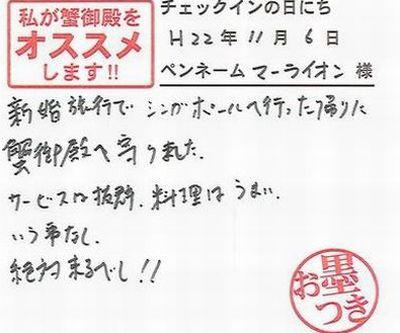 私が蟹御殿を
オススメ
します!!
チェックインの日にち
H22年11月6日
ペンネーム マーライオン 様
新婚旅行で シンガポールへ行った帰りに
蟹御殿へ寄りました.
サービスは抜群.料理はうまい.
いう事なし.
絶対来るべし!!
お墨
つき